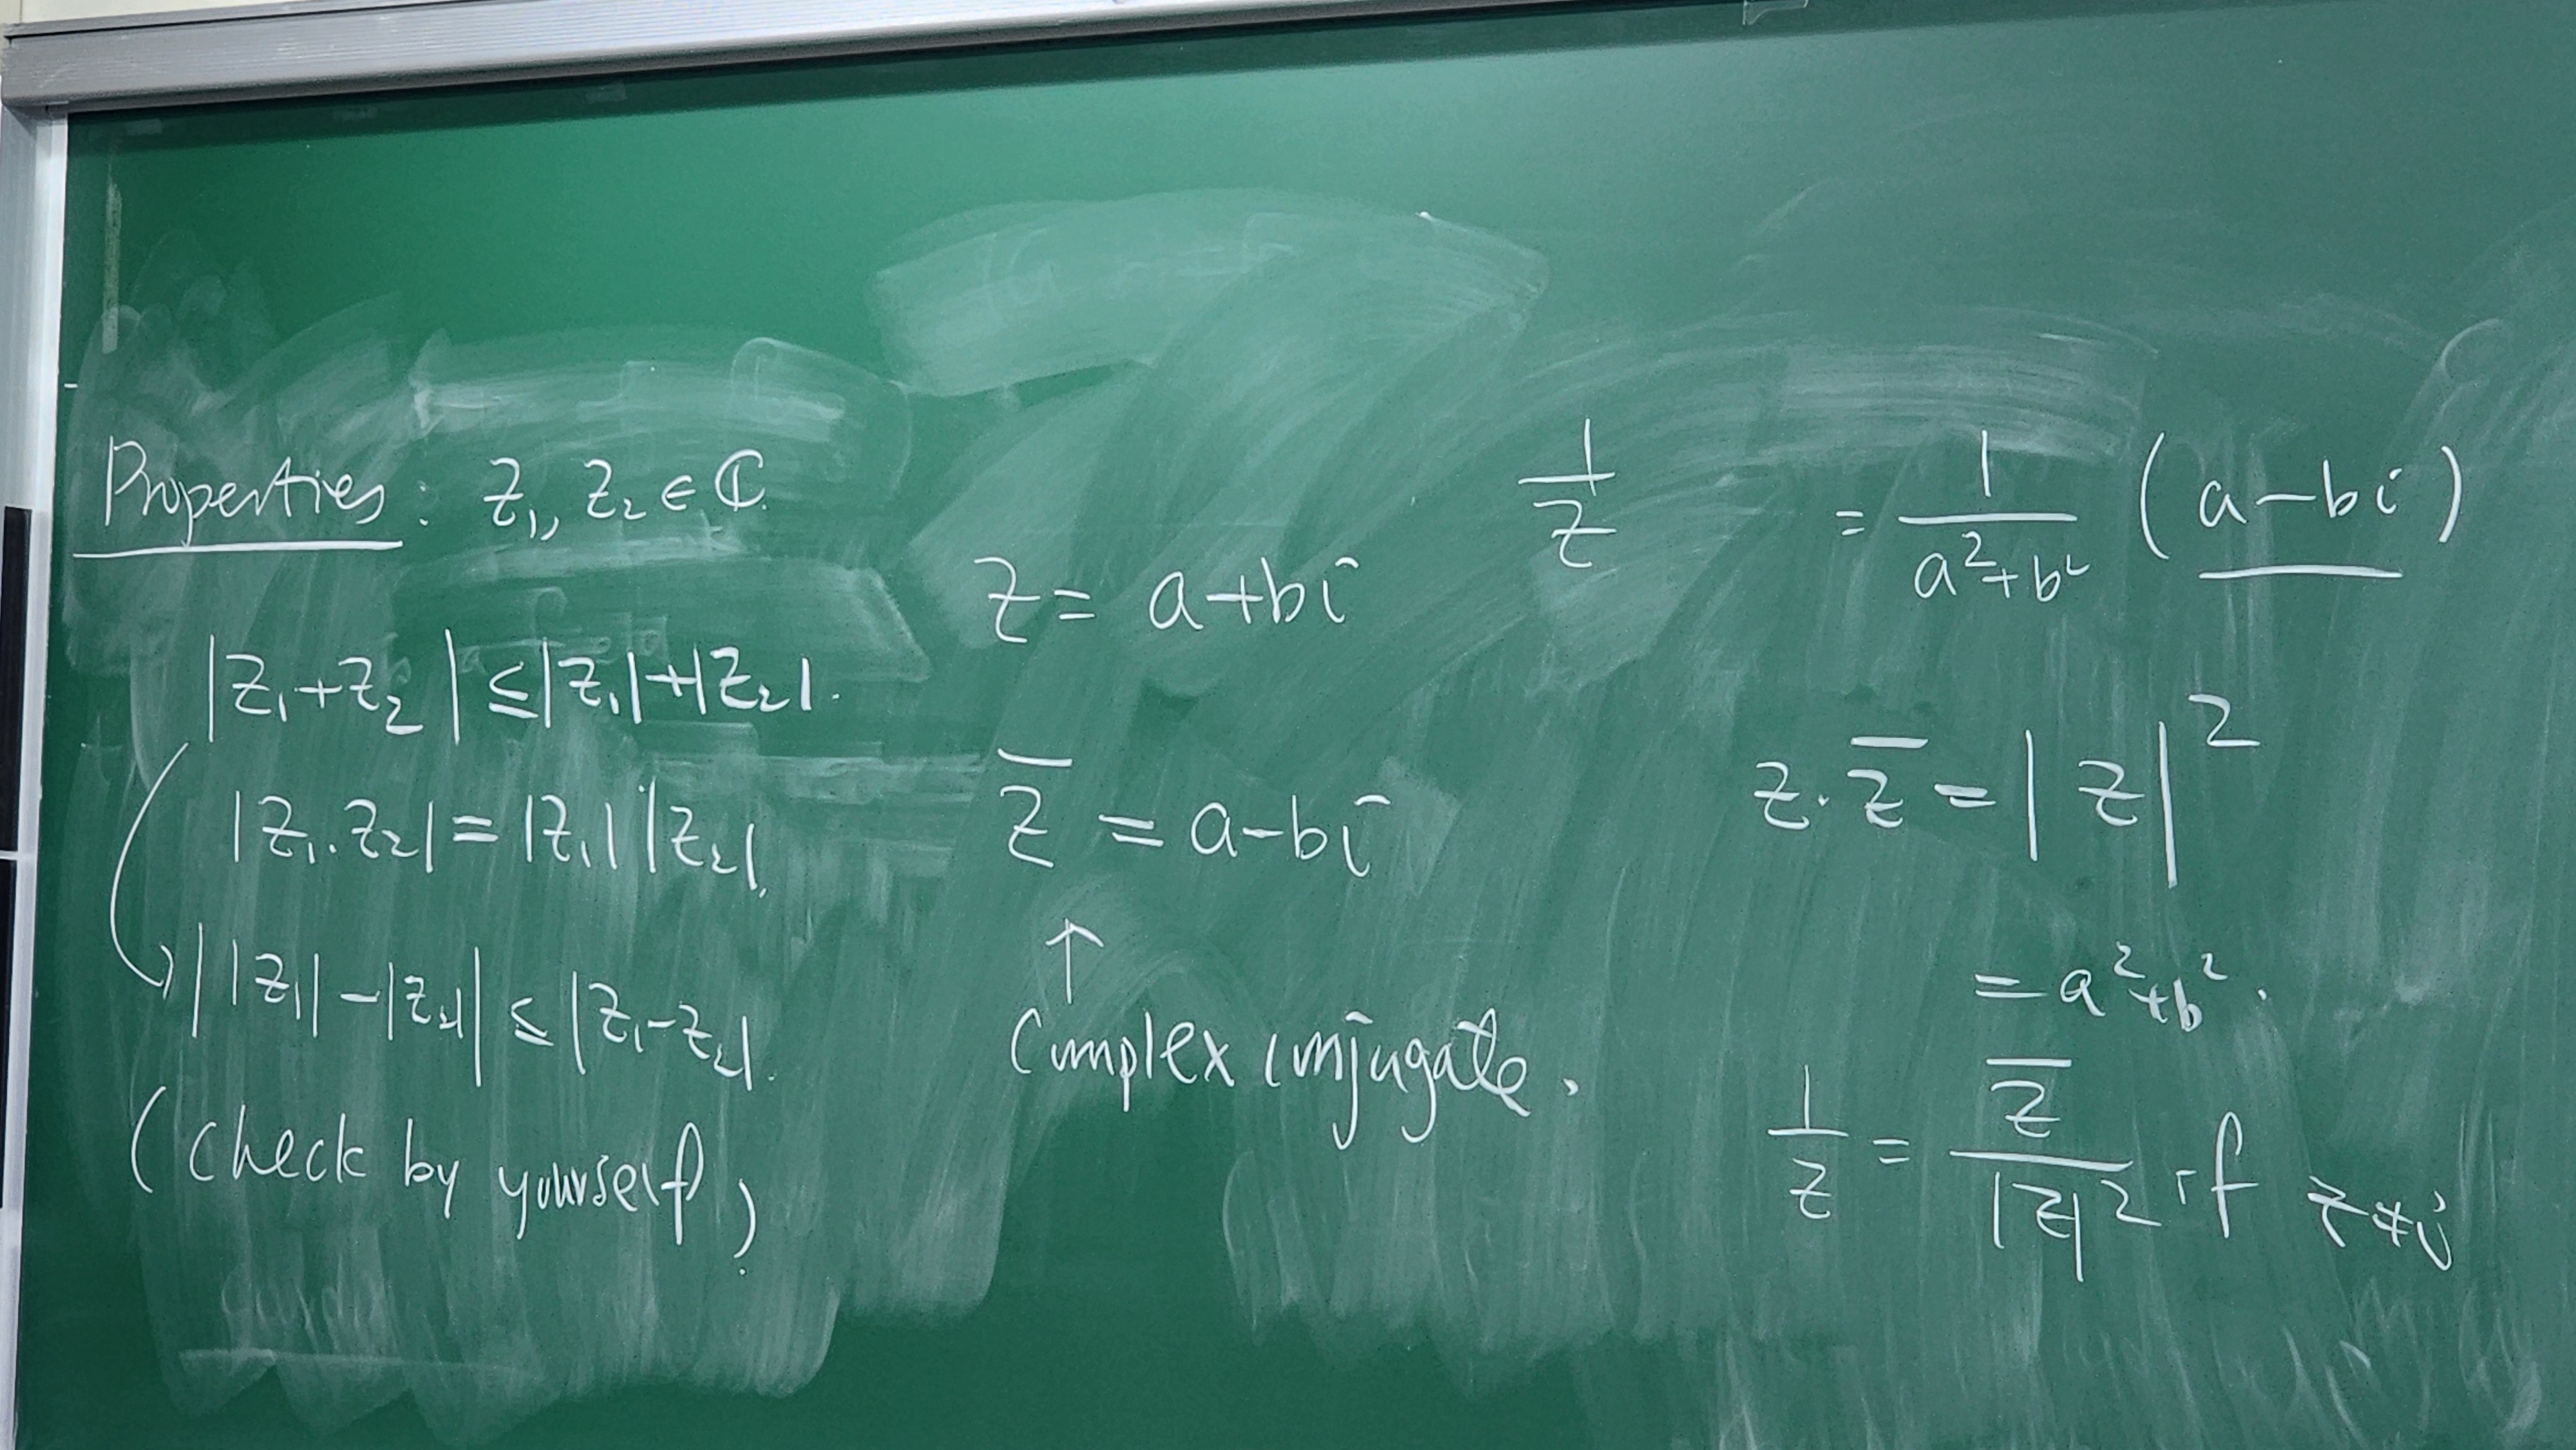 Properties: z₁, z₂ ∈ ℂ.
|z₁+z₂| ≤ |z₁|+|z₂|.
|z₁·z₂| = |z₁||z₂|.
||z₁|-|z₂|| ≤ |z₁-z₂|.
(check by yourself)
z = a+bi
z̅ = a-bi
↑
Complex conjugate.
1/z = 1/(a²+b²) (a-bi)
z·z̅ = |z|²
= a²+b².
1/z = z̅/|z|² if z≠0